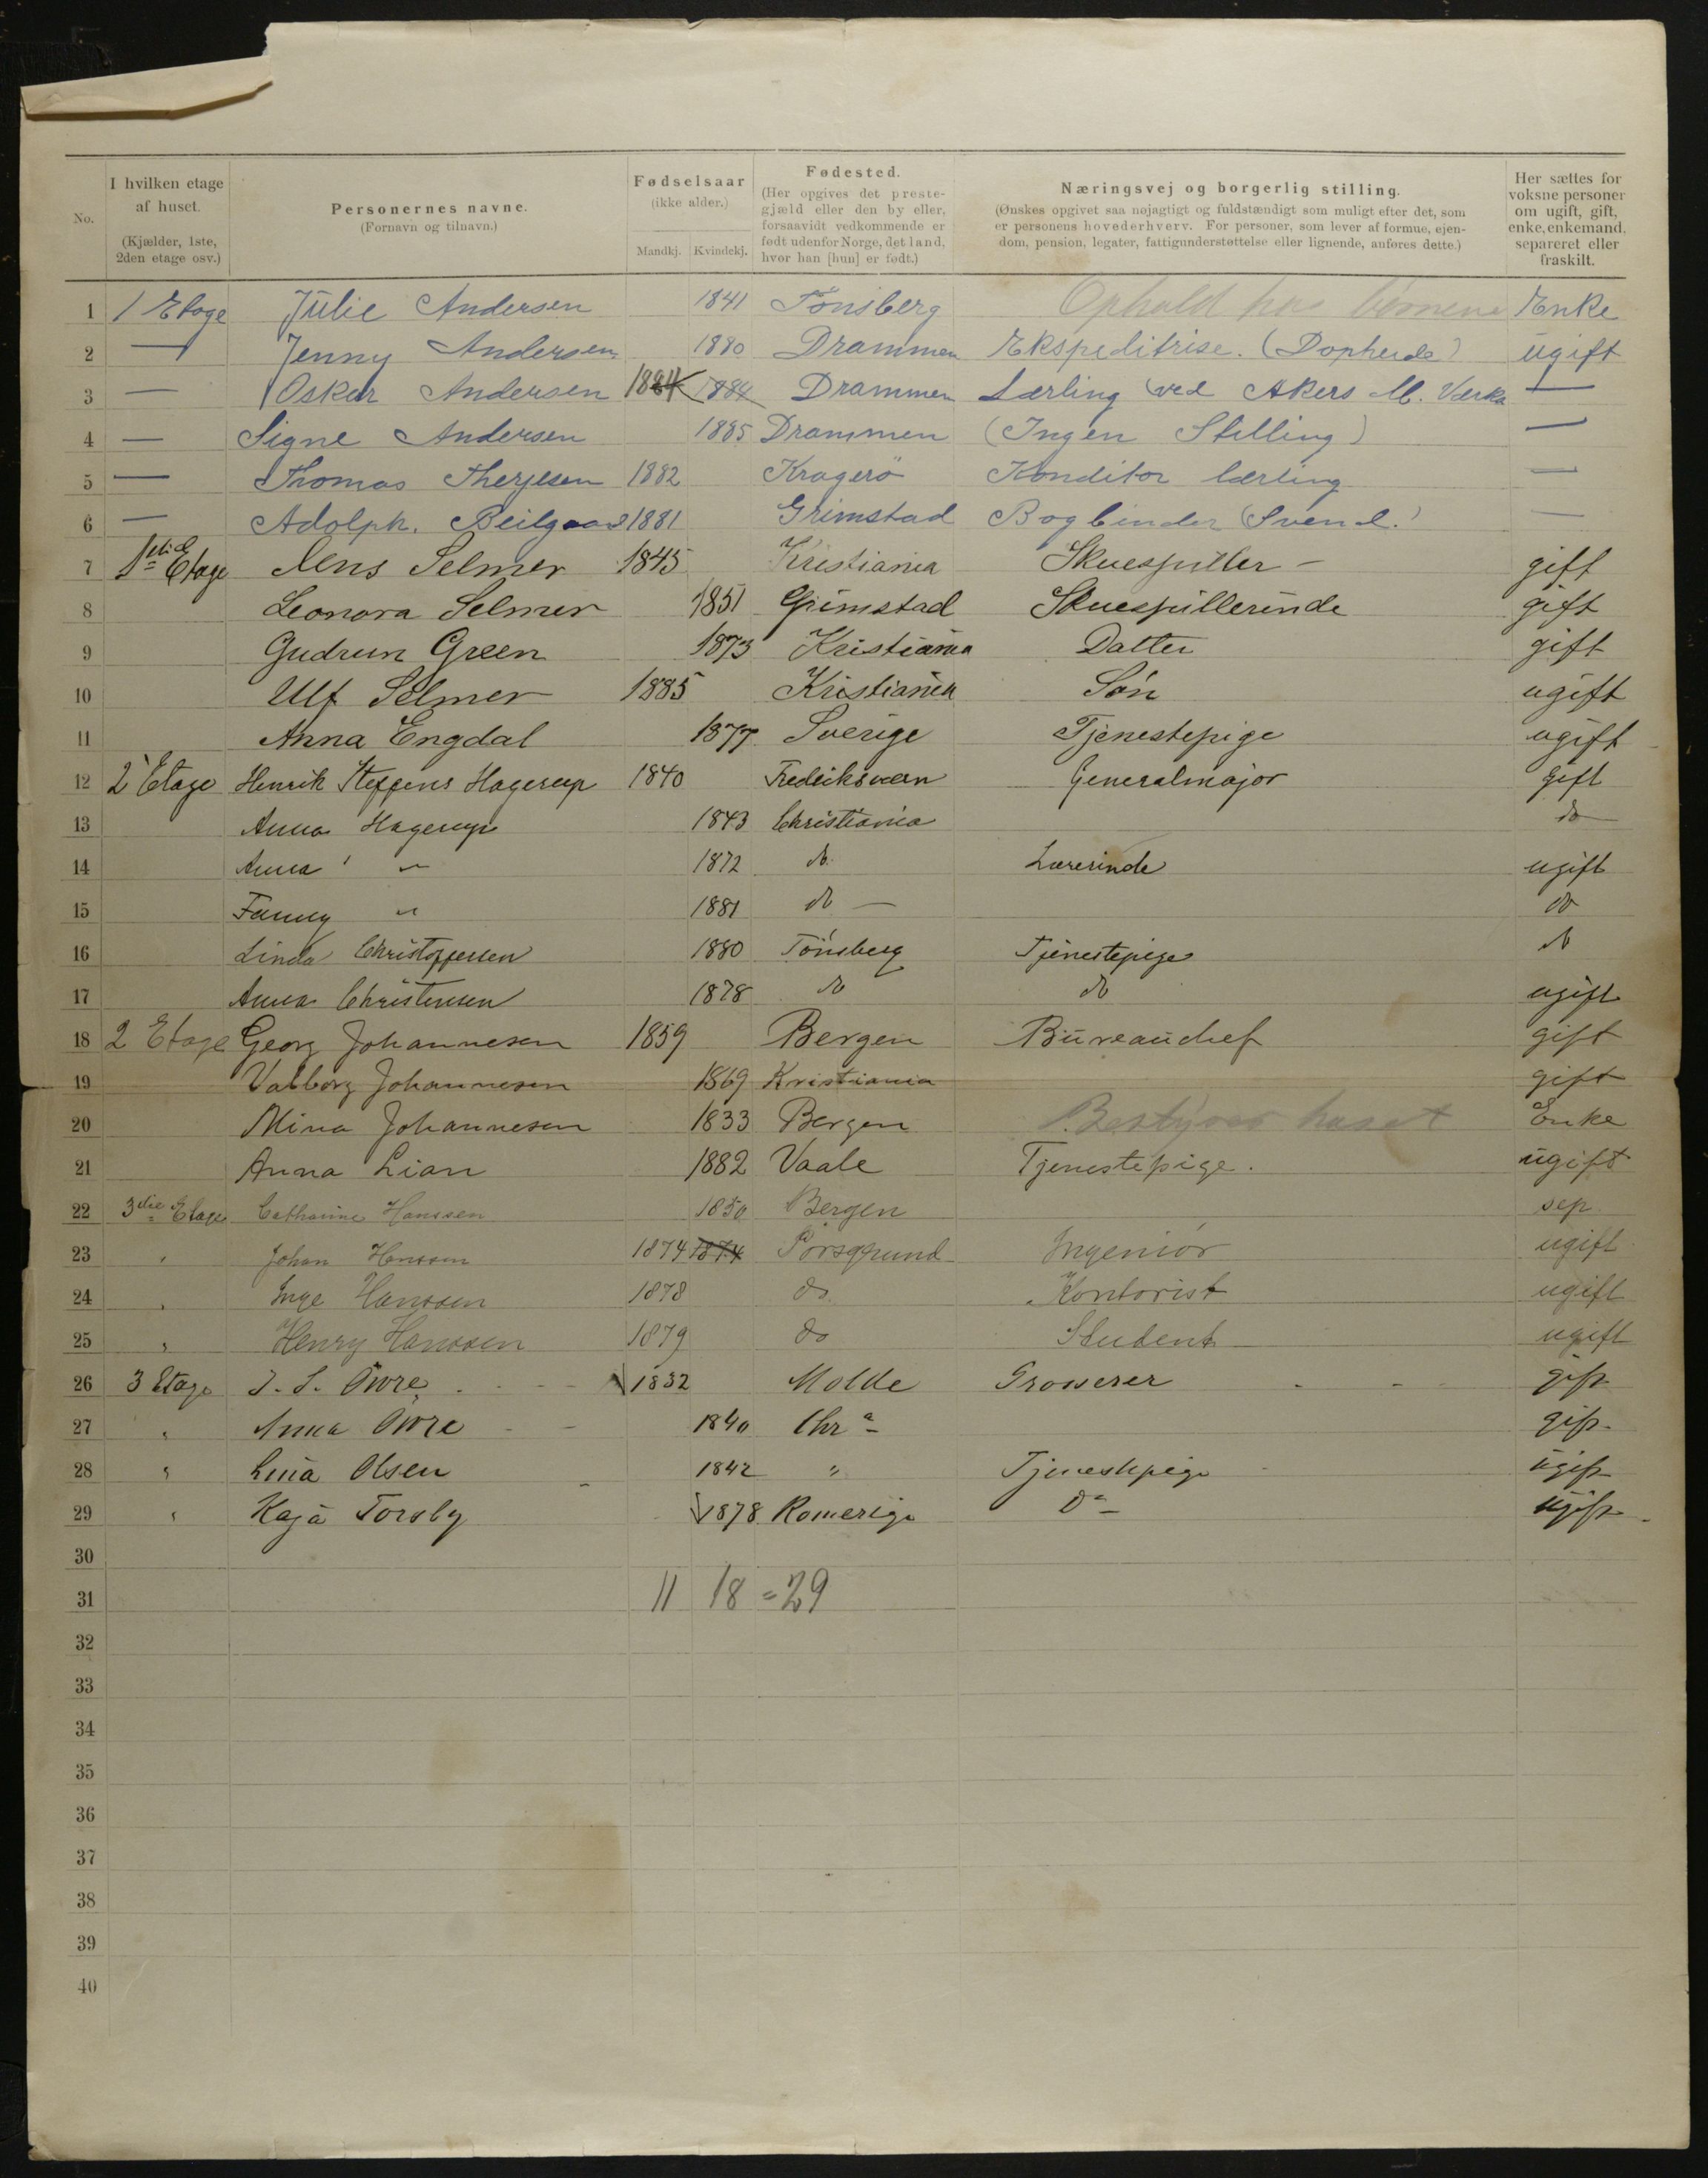 No.
I hvilken etage af huset.
(Kjælder, 1ste, 2den etage osv.)
Personernes navne.
(Fornavn og tilnavn.)
Fødselsaar
(ikke alder.)
Mandkj. Kvindekj.
Fødested.
(Her opgives det prestegjæld eller den by eller, forsaavidt vedkommende er født udenfor Norge, det land, hvor han [hun] er født.)
Næringsvej og borgerlig stilling.
(Ønskes opgivet saa nøjagtigt og fuldstændigt som muligt efter det, som er personens hovederhverv. For personer, som lever af formue, ejendom, pension, legater, fattigunderstøttelse eller lignende, anføres dette.)
Her sættes for voksne personer om ugift, gift, enke, enkemand, separeret eller fraskilt.
1 1 Etage Julie Andersen 1841 Tønsberg Ophold hos børnene Enke
2 — Jenny Andersen 1880 Drammen Ekspeditrise. ugift
3 — Oskar Andersen 1884 1884 Drammen Lærling ved Akers M. Værks —
4 — Signe Andersen 1885 Drammen (Ingen Stilling) —
5 — Thomas Therjesen 1882 Kragerö Konditor lærling —
6 — Adolph. Beilgaard 1881 Grimstad Bogbinder (Svend.) —
7 1ste Etage Jens Selmer 1845 Kristiania Skuespiller — gift
8 Leonora Selmer 1851 Grimstad Skuespillerinde gift
9 Gudrun Green 1873 Kristiania Datter gift
10 Ulf Selmer 1885 Kristiania Søn ugift
11 Anna Engdal 1877 Sverige Tjenestepige ugift
12 2 Etage Henrik Steffens Hagerup 1840 Frederiksværn Generalmajor gift
13 Anna Hagerup 1843 Christiania do
14 Anna " 1872 do Lærerinde ugift
15 Fanny " 1881 do — do
16 Linda Christoffersen 1880 Tönsberg Tjenestepige do
17 Anna Christensen 1878 do do ugift
18 2 Etage Georg Johannesen 1859 Bergen Büreauchef gift
19 Valborg Johannesen 1869 Kristiania gift
20 Mina Johannesen 1833 Bergen Bestyrer huset Enke
21 Anna Lian 1882 Vaale Tjenestepige. ugift
22 3die Etage Catharine Hanssen 1850 Bergen sep.
23 " Johan Hanssen 1874 1874 Porsgrund Ingeniör ugift
24 " Inge Hanssen 1878 do Kontorist ugift
25 " Henry Hanssen 1879 do Student ugift
26 3 Etage Öwre 1832 Molde Grosserer gift
27 " Anna Öwre 1840 Chra gift
28 " Lina Olsen 1842 " Tjenestepige ugift
29 " Kaja Torsby 1878 Romerige Do ugift
30
31 11 18 = 29
32
33
34
35
36
37
38
39
40